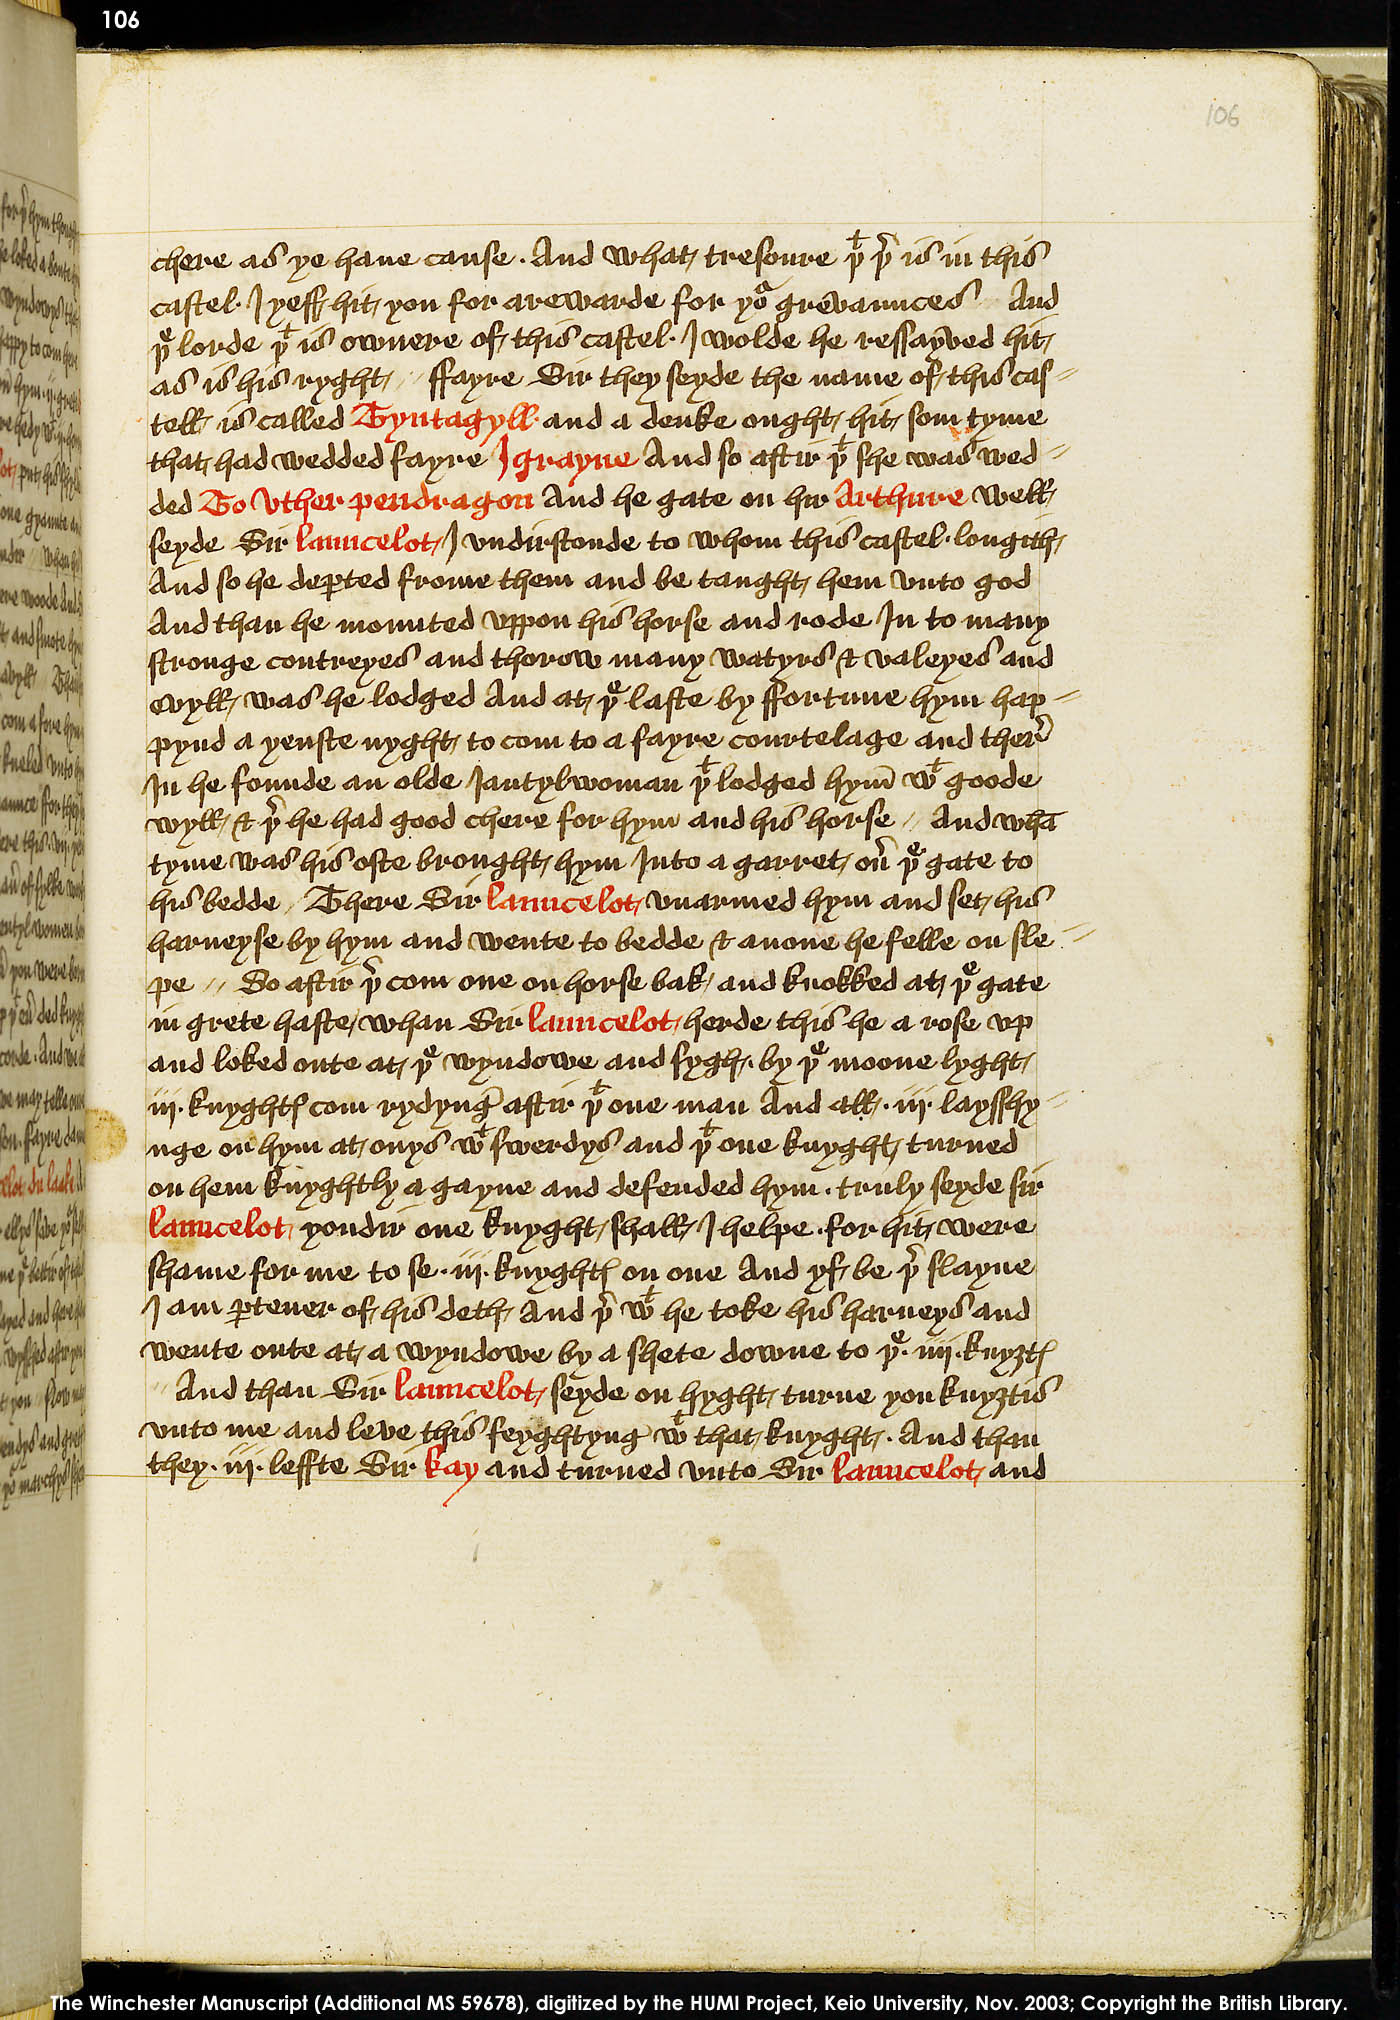 106
106
chere as ye haue cause . And what tresoure þᵗ þ̉ is in this
castel . I yeff hit you for a rewarde for yoᵘ grevaunces // And
þᵉ lorde þᵗ is ownere of this castel . I wolde he ressayved hit
as is his ryght // ffayre Sir they seyde the name of this cas-
tell is called Tyntagyll . and a deuke ought hit som tyme
that had wedded fayre Igrayne And so aftir þᵗ she was wed-
ded To Vther pendragon And he gate on hir Arthure well
seyde Sir launcelot / I vndirstonde to whom this castel . longith /
And so he deꝑted frome them and be taught hem vnto god
And than he mounted vppon his horse and rode In to many
stronge contreyes and thorow many watyrs & valeyes and
evyll was he lodged And at þᵉ laste by ffortune hym hap-
pynd a yenste nyght to com to a fayre courtelage and ther̉
In he founde an olde Iantylwoman þᵗ lodged hym̄ wᵗ goode
wyll / & þ̉ he had good chere for hym and his horse // And whā
tyme was his oste brought hym Into a garret oủ þᵉ gate to
his bedde / There Sir launcelot vnarmed hym and set his
harneyse by hym and wente to bedde & anone he felle on sle-
pe // So aftir þ̉ com one on horse bak / and knokked at þᵉ gate
in grete haste / whan Sir launcelot herde this he a rose vp
and loked oute at þᵉ wyndowe and sygh . by þᵉ moone lyght
.iij. knyghtꝭ com rydyng̉ aftir þᵗ one man And all . iij . laysshy-
nge on hym at onys wᵗ swerdys and þᵗ one knyght turned
on hem knyghtly a gayne and defended hym . truly seyde sir
launcelot / yondir one knyght shall I helpe . for hit were
shame for me to se . iij . knyghtꝭ on one And yf he be þ̉ slayne
I am ꝑtener of his deth / And þ̉ wᵗ he toke his harneys and
wente oute at a wyndowe by a shete downe to þᵉ . iiij . knyȝtꝭ
// And than Sir launcelot seyde on hyght turne you knyȝtis
vnto me and leve this feyghtyng wᵗ that knyght . And than
they . iij . leffte Sir kay and turned vnto Sir launcelot / and
The Winchester Manuscript (Additional MS 59678), digitized by the HUMI Project, Keio University, Nov. 2003; Copyright the British Library.